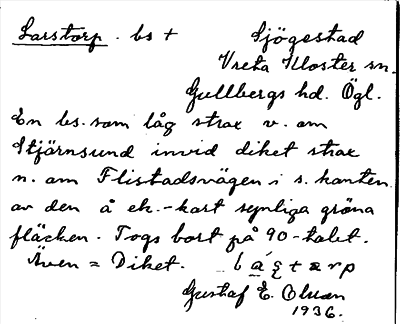 Larstorp. bs + Sjögestad
Vreta Kloster sn.
Gullbergs hd. Ögl.
En bs. som låg strax v. om
Stjärnsund invid diket strax
n. om Flistadsvägen i s. kanten
av den å ek.-kart synliga gröna
fläcken. Togs bort på 90-talet.
Även = Diket.
Gustaf E. Olsson
1936.